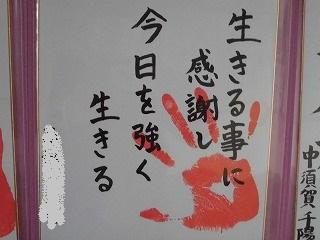 生きる事に
感謝し
今日を強く
生きる
中須賀千陽